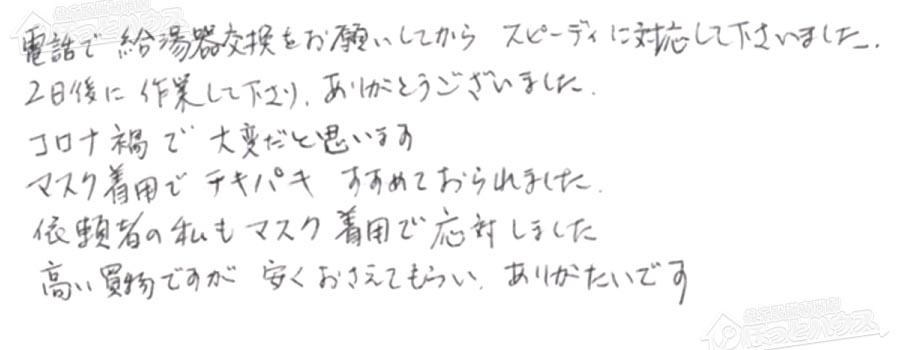 電話で 給湯器交換をお願いしてから スピーディに対応して下さいました.
2日後に 作業して下さり、ありがとうございました.
コロナ禍で 大変だと思います
マスク着用で テキパキ すすめておられました.
依頼者の私も マスク着用で 応対しました
高い買物ですが 安くおさえてもらい、ありがたいです
ほっとハウス